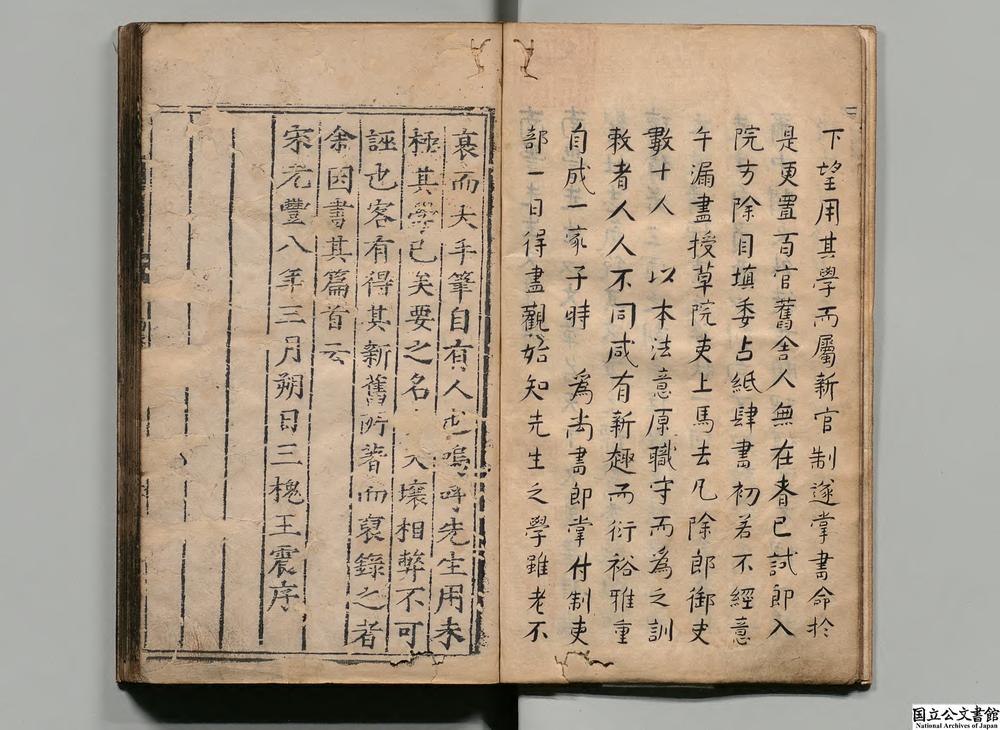 下望用其學而屬新官制遂掌書命於
是更置百官舊舍人無在者已試即入
院方除目填委占紙肆書初若不經意
午漏盡授草院吏上馬去凡除郎御史
數十人以本法意原職守而為之訓
敕者人人不同咸有新趣而衍裕雅重
自成一家子時為尚書郎掌付制吏
部一日得盡觀始知先生之學雖老不
衰而大手筆自有人也嗚呼先生用未
極其學已矣要之名天壤相弊不可
誣也客有得其新舊所著而裒錄之者
余因書其篇首云
宋元豐八年三月朔日三槐王震序
国立公文書館
National Archives of Japan